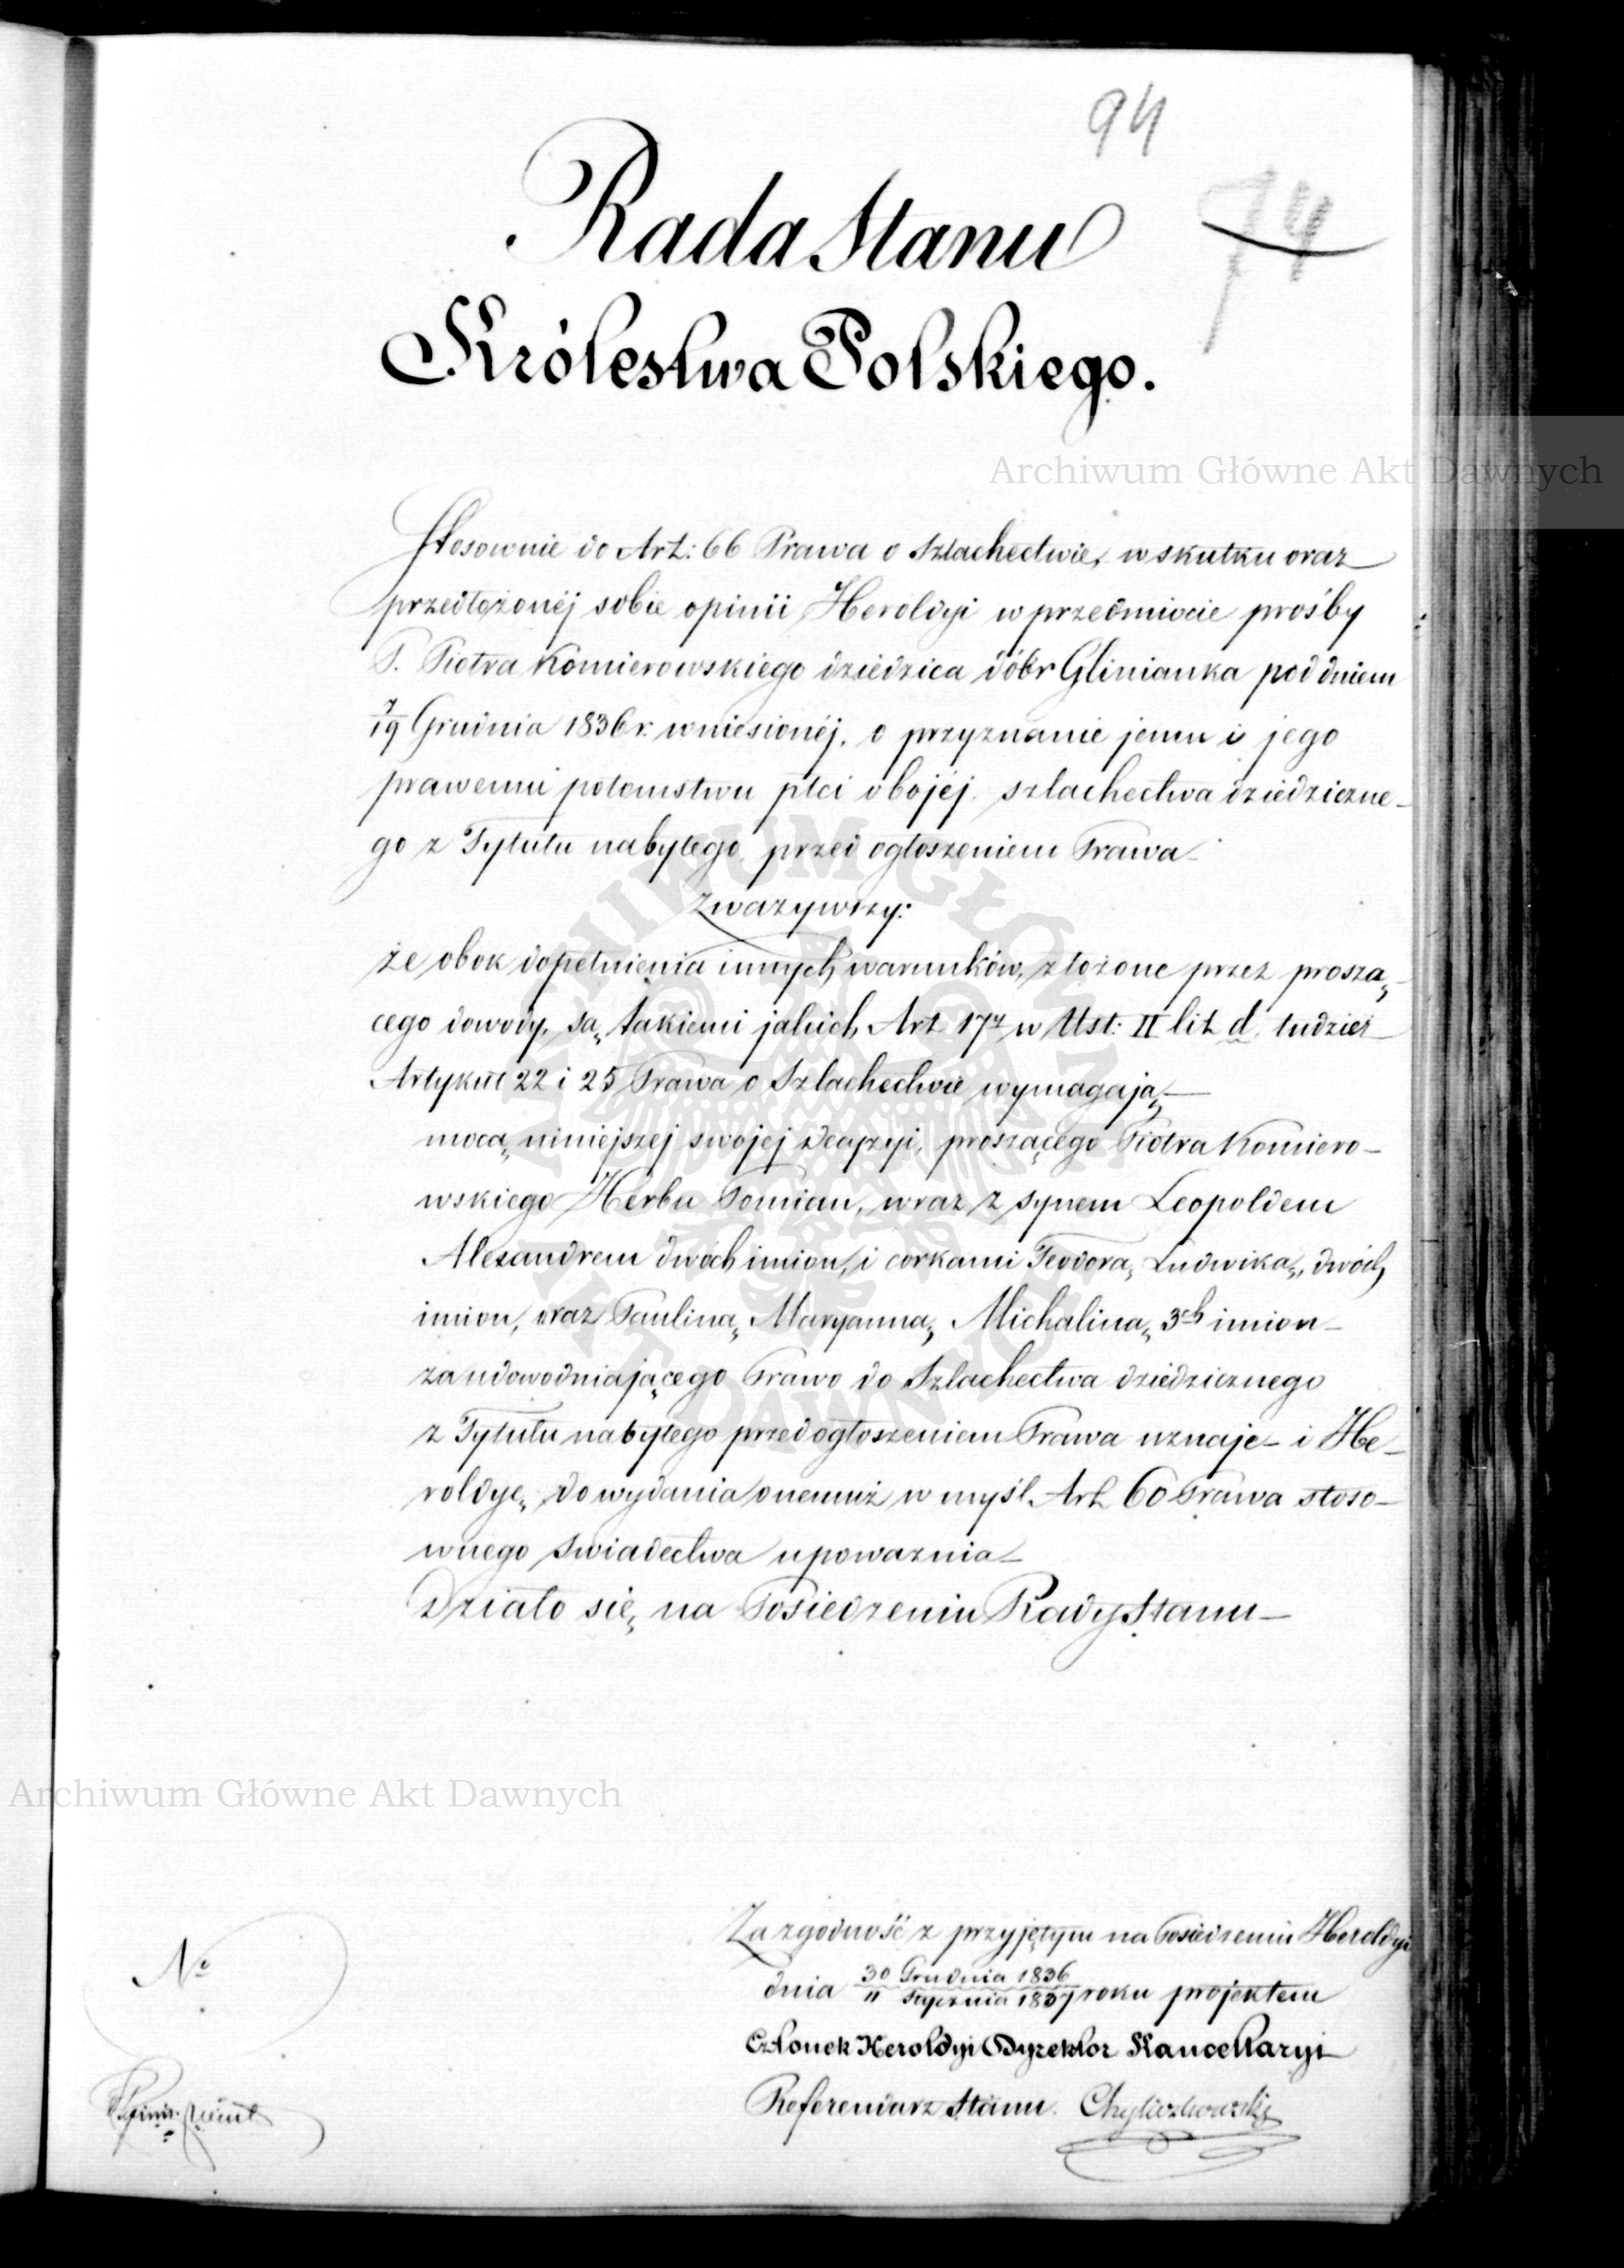 94
74
Rada Stanu
Królestwa Polskiego.
Archiwum Główne Akt Dawnych
Stosownie do Art: 66 Prawa o Szlachectwie, w skutku oraz
przedłożonéj sobie opinii Heroldyi w przedmiocie prośby
P. Piotra Komierowskiego dziedzica dóbr Glinianka pod dniem
7/19 Grudnia 1836 r. wniesionéj, o przyznanie jemu i jego
prawemu potomstwu płci obojéj szlachectwa dziedziczne-
go z Tytułu nabytego przed ogłoszeniem Prawa
Zważywszy:
że obok dopełnienia innych warunków, złożone przez prosza,-
cego dowody, są takiemi jakich Art 17ty w Ust: II lit d. tudzież
Artykuł 22 i 25 Prawa o Szlachectwie wymagają
mocą niniejszej swojej decyzyi, proszącego Piotra Komiero-
wskiego Herbu Pomian, wraz z synem Leopoldem
Alexandrem dwóch imion, i corkami Teodorą, Ludwiką, dwóch
imion, oraz Pauliną, Maryanną, Michaliną, 3ch imion
za udowodniającego Prawo do Szlachectwa dziedzicznego
z Tytułu nabytego przed ogłoszeniem Prawa uznaje i He-
roldyę, do wydania onemuż w myśl Art 60 Prawa stoso-
wnego świadectwa upoważnia
Działo się, na Posiedzeniu Rady Stanu
Archiwum Główne Akt Dawnych
Za zgodność z przyjętym na Posiedzeniu Heroldyi
No
dnia 30 Grudnia 1836 / 11 Stycznia 1837 roku projektem
Członek Heroldyi Dyrektor Kancellaryi
Referendarz Stanu. Chyliczkowski
ARCHIWUM GŁÓWNE AKT DAWNYCH